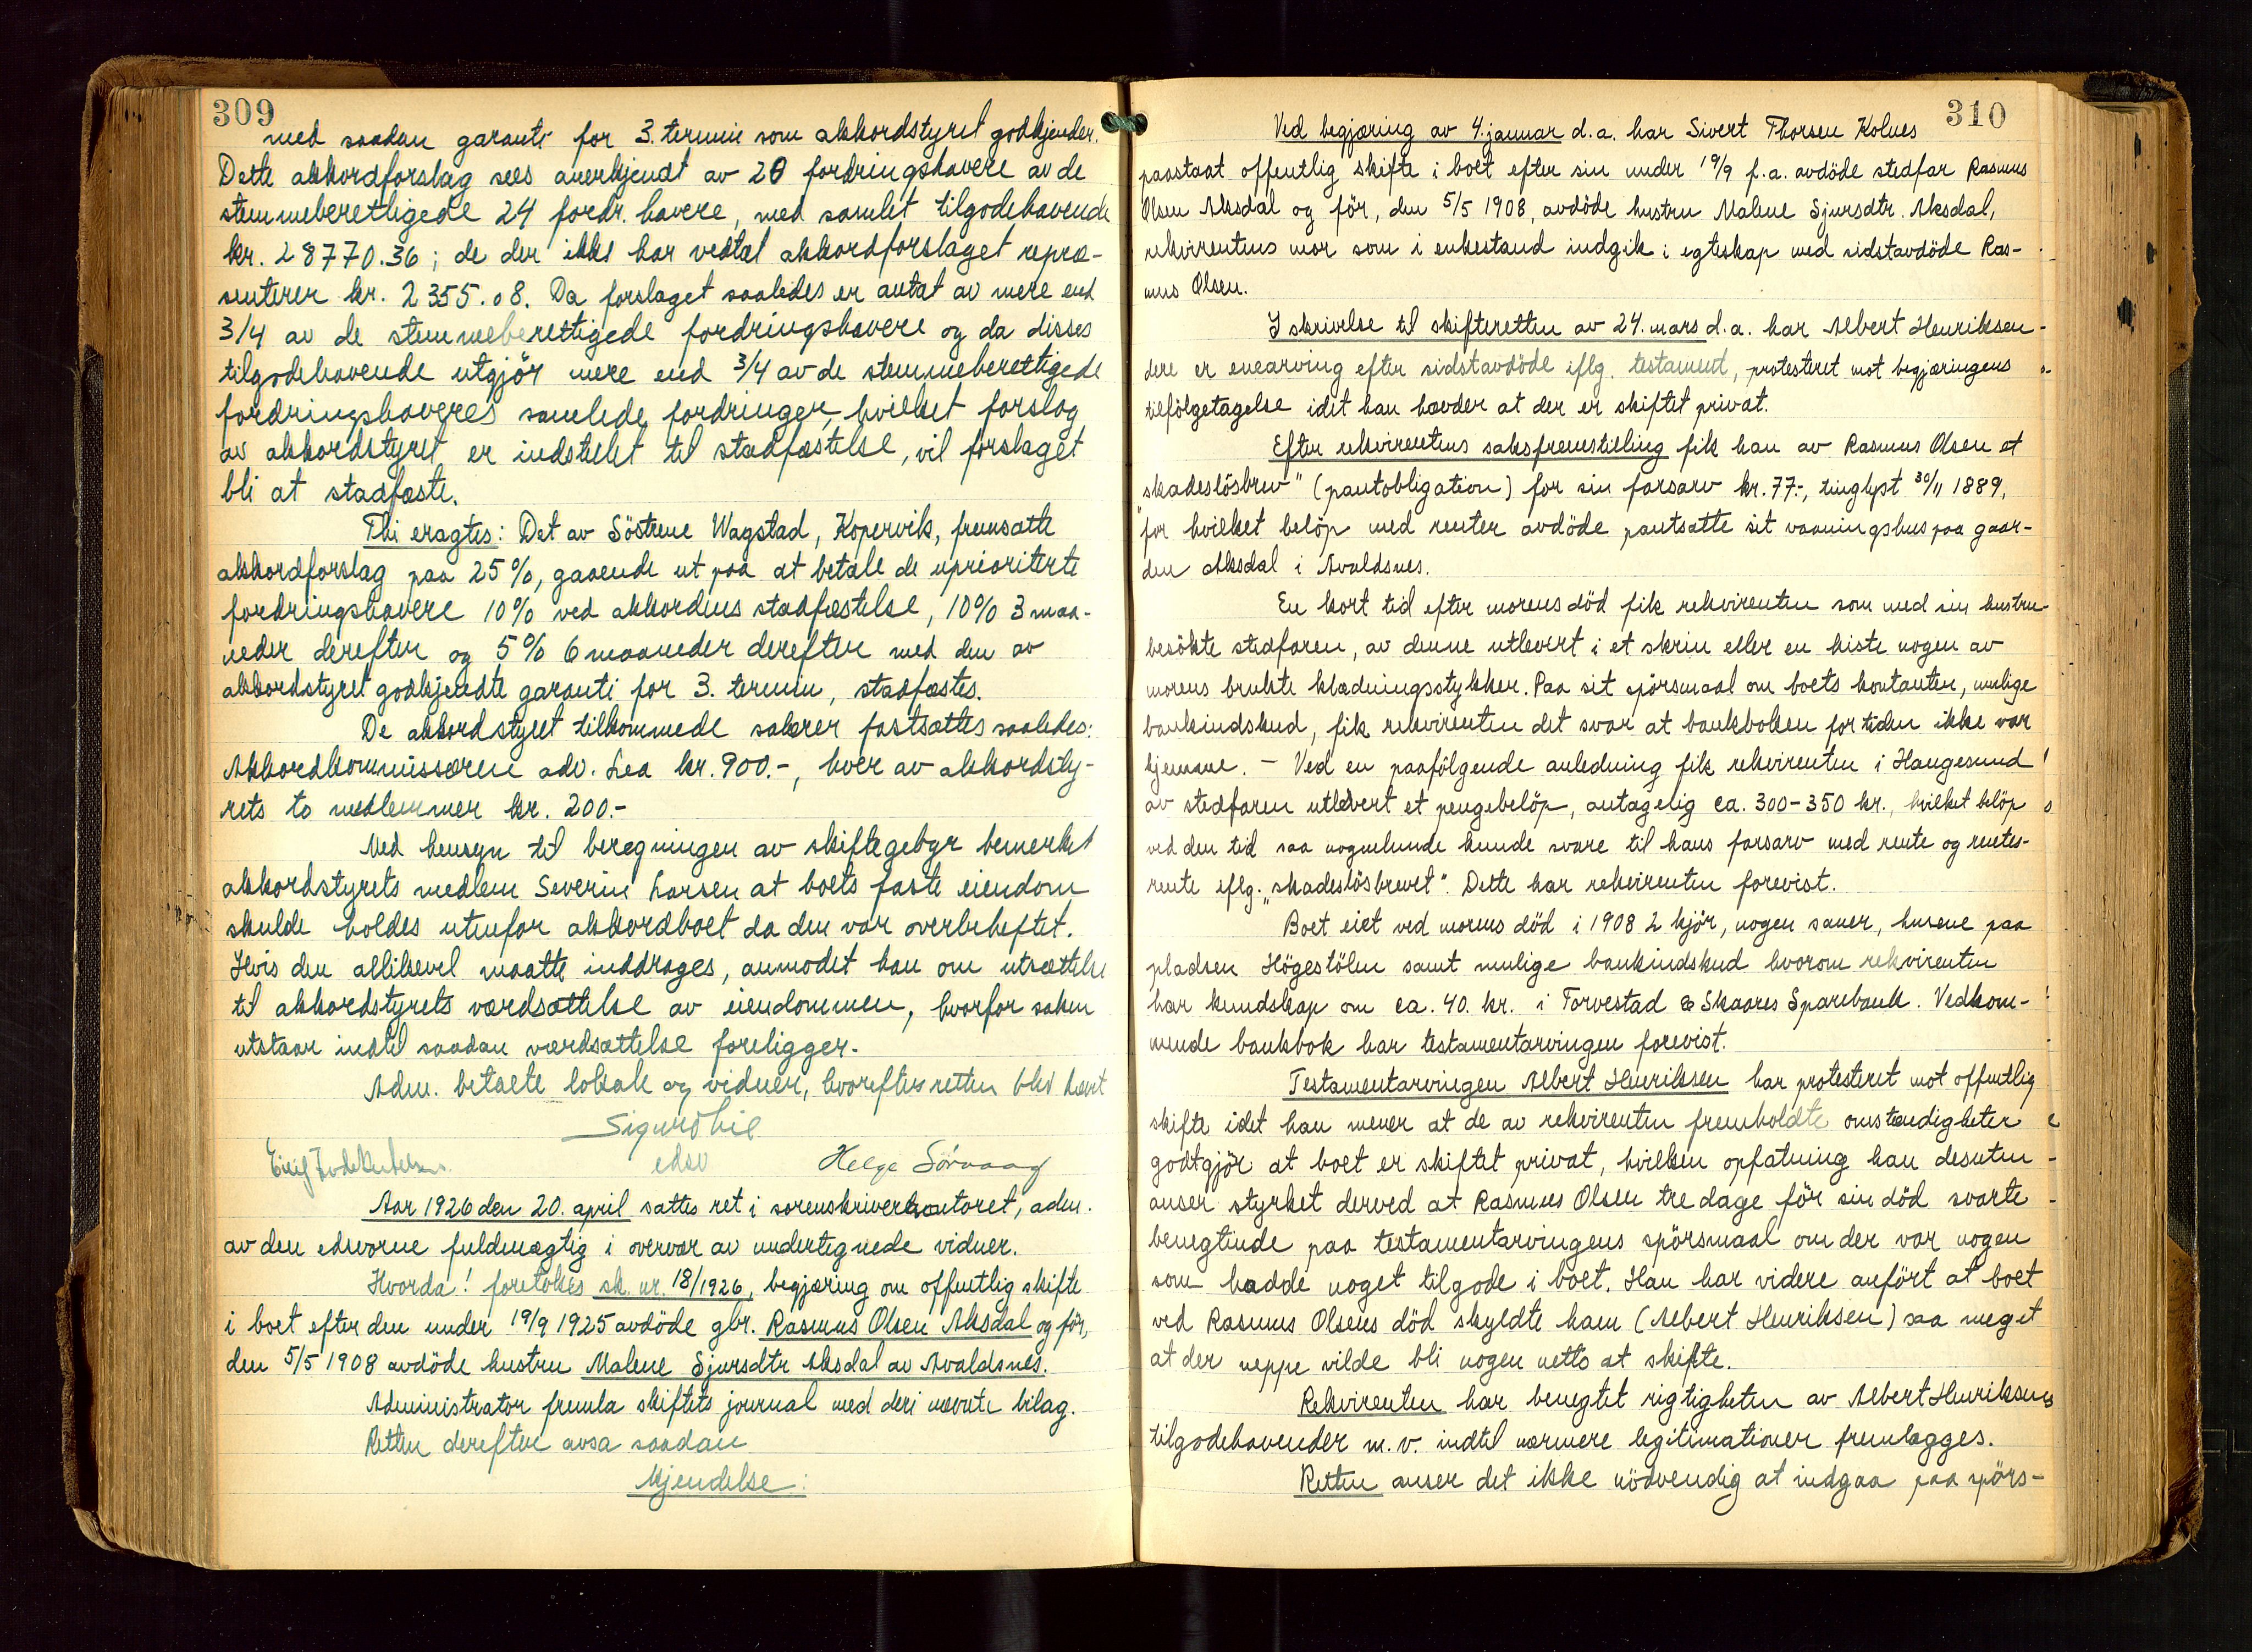 309
med saadan garanti for 3. termin som akkordstyret godkjender.
Dette akkordforslag sees anerkjendt av 20 fordringshavere av de
stemmeberettigede 24 fordr. havere, med samlet tilgodehavende
kr. 28770.36; de der ikke har vedtat akkordforslaget repræ-
senterer kr. 2355.08. Da forslaget saaledes er antat av mere end
3/4 av de stemmeberettigede fordringshavere og da disses
tilgodehavende utgjör mere end 3/4 av de stemmeberettigede
fordringshaveres samlede fordringer, hvilket forslag
av akkordstyret er indstillet til stadfæstelse, vil forslaget
bli at stadfæste.
Thi eragtes: Det av Söstrene Wagstad, Kopervik, fremsatte
akkordforslag paa 25%, gaaende ut paa at betale de uprioriterte
fordringshavere 10% ved akkordens stadfæstelse, 10% 3 maa-
neder derefter og 5% 6 maaneder derefter med den av
akkordstyret godkjendte garanti for 3. termin, stadfæstes.
De akkordstyret tilkommede salærer fastsættes saaledes:
Akkordkommissæren adv. Lea kr. 900.-, hver av akkordsty-
rets to medlemmer kr. 200.-
Med hensyn til beregningen av skiftegebyr bemerket
akkordstyrets medlem Severin Larsen at boets faste eiendom
skulde holdes utenfor akkordboet da den var overbeheftet.
Hvis den allikevel maatte inddrages, anmodet han om utsættelse
til akkordstyrets værdsættelse av eiendommen, hvorfor saken
utstaar indtil saadan værdsættelse foreligger.
Adm. betalte lokale og vidner, hvorefter retten blev hævet
Sigurd Lie
edsv Helge Sörvaag
Aar 1926 den 20. april sattes ret i sorenskriverkontoret, adm.
av den edsvorne fuldmægtig i overvær av undertegnede vidner.
Hvorda! foretokes sk. nr. 18/1926, begjæring om offentlig skifte
i boet efter den under 19/9 1925 avdöde gbr. Rasmus Olsen Aksdal og för,
den 5/5 1908 avdöde hustru Malene Sjursdtr Aksdal av Avaldsnes.
Administrator fremla skiftets journal med deri nævnte bilag.
Retten derefter avsa saadan
Kjendelse:
310
Ved begjæring av 4. januar d.a. har Sivert Thorsen Kolnes
paastaat offentlig skifte i boet efter sin under 19/9 f.a. avdöde stedfar Rasmus
Olsen Aksdal og för, den 5/5 1908, avdöde hustru Malene Sjursdtr. Aksdal,
rekvirentens mor som i enkestand indgik i egteskap med sidstavdöde Ras-
mus Olsen.
I skrivelse til skifteretten av 24. mars d.a. har Albert Henriksen
dere er enearving efter sidstavdöde iflg. testament, protesteret mot begjæringens
tilfölgetagelse idet han hævder at der er skiftet privat.
Efter rekvirentens saksfremstilling fik han av Rasmus Olsen et
"skadeslösbrev" (pantobligation) for sin farsarv kr. 77.-, tinglyst 30/11 1889,
for hvilket belöp med renter avdöde pantsatte sit vaaningshus paa gaar-
den Aksdal i Avaldsnes.
En kort tid efter morens död fik rekvirenten som med sin hustru
besökte stedfaren, av denne utlevert i et skrin eller en kiste nogen av
morens brukte klædningsstykker. Paa sit spörsmaal om boets kontanter, mulige
bankindskud, fik rekvirenten det svar at bankboken for tiden ikke var
hjemme. - Ved en paafölgende anledning fik rekvirenten i Haugesund
av stedfaren utlevert et pengebelöp, antagelig ca. 300-350 kr., hvilket belöp
ved den tid saa nogenlunde kunde svare til hans farsarv med rente og rentes-
rente iflg. "skadeslösbrevet". Dette har rekvirenten forevist.
Boet eiet ved morens död i 1908 2 kjör, nogen sauer, husene paa
pladsen Högestölen samt mulige bankindskud hvorom rekvirenten
har kundskap om ca. 40. kr. i Torvestad & Skaares Sparebank. Vedkom-
mende bankbok har testamentarvingen forevist.
Testamentarvingen Albert Henriksen har protesteret mot offentlig
skifte idet han mener at de av rekvirenten fremholdte omstændigheter
godtgjör at boet er skiftet privat, hvilken opfatning han desuten
anser styrket derved at Rasmus Olsen tre dage för sin död svarte
benegtende paa testamentarvingens spörsmaal om der var nogen
som hadde noget tilgode i boet. Han har videre anfört at boet
ved Rasmus Olsens död skyldte ham (Albert Henriksen) saa meget
at der neppe vilde bli nogen netto at skifte.
Rekvirenten har benegtet rigtigheten av Albert Henriksens
tilgodehavender m.v. indtil nærmere legitimationer fremlægges.
Retten anser det ikke nödvendig at indgaa paa spörs-